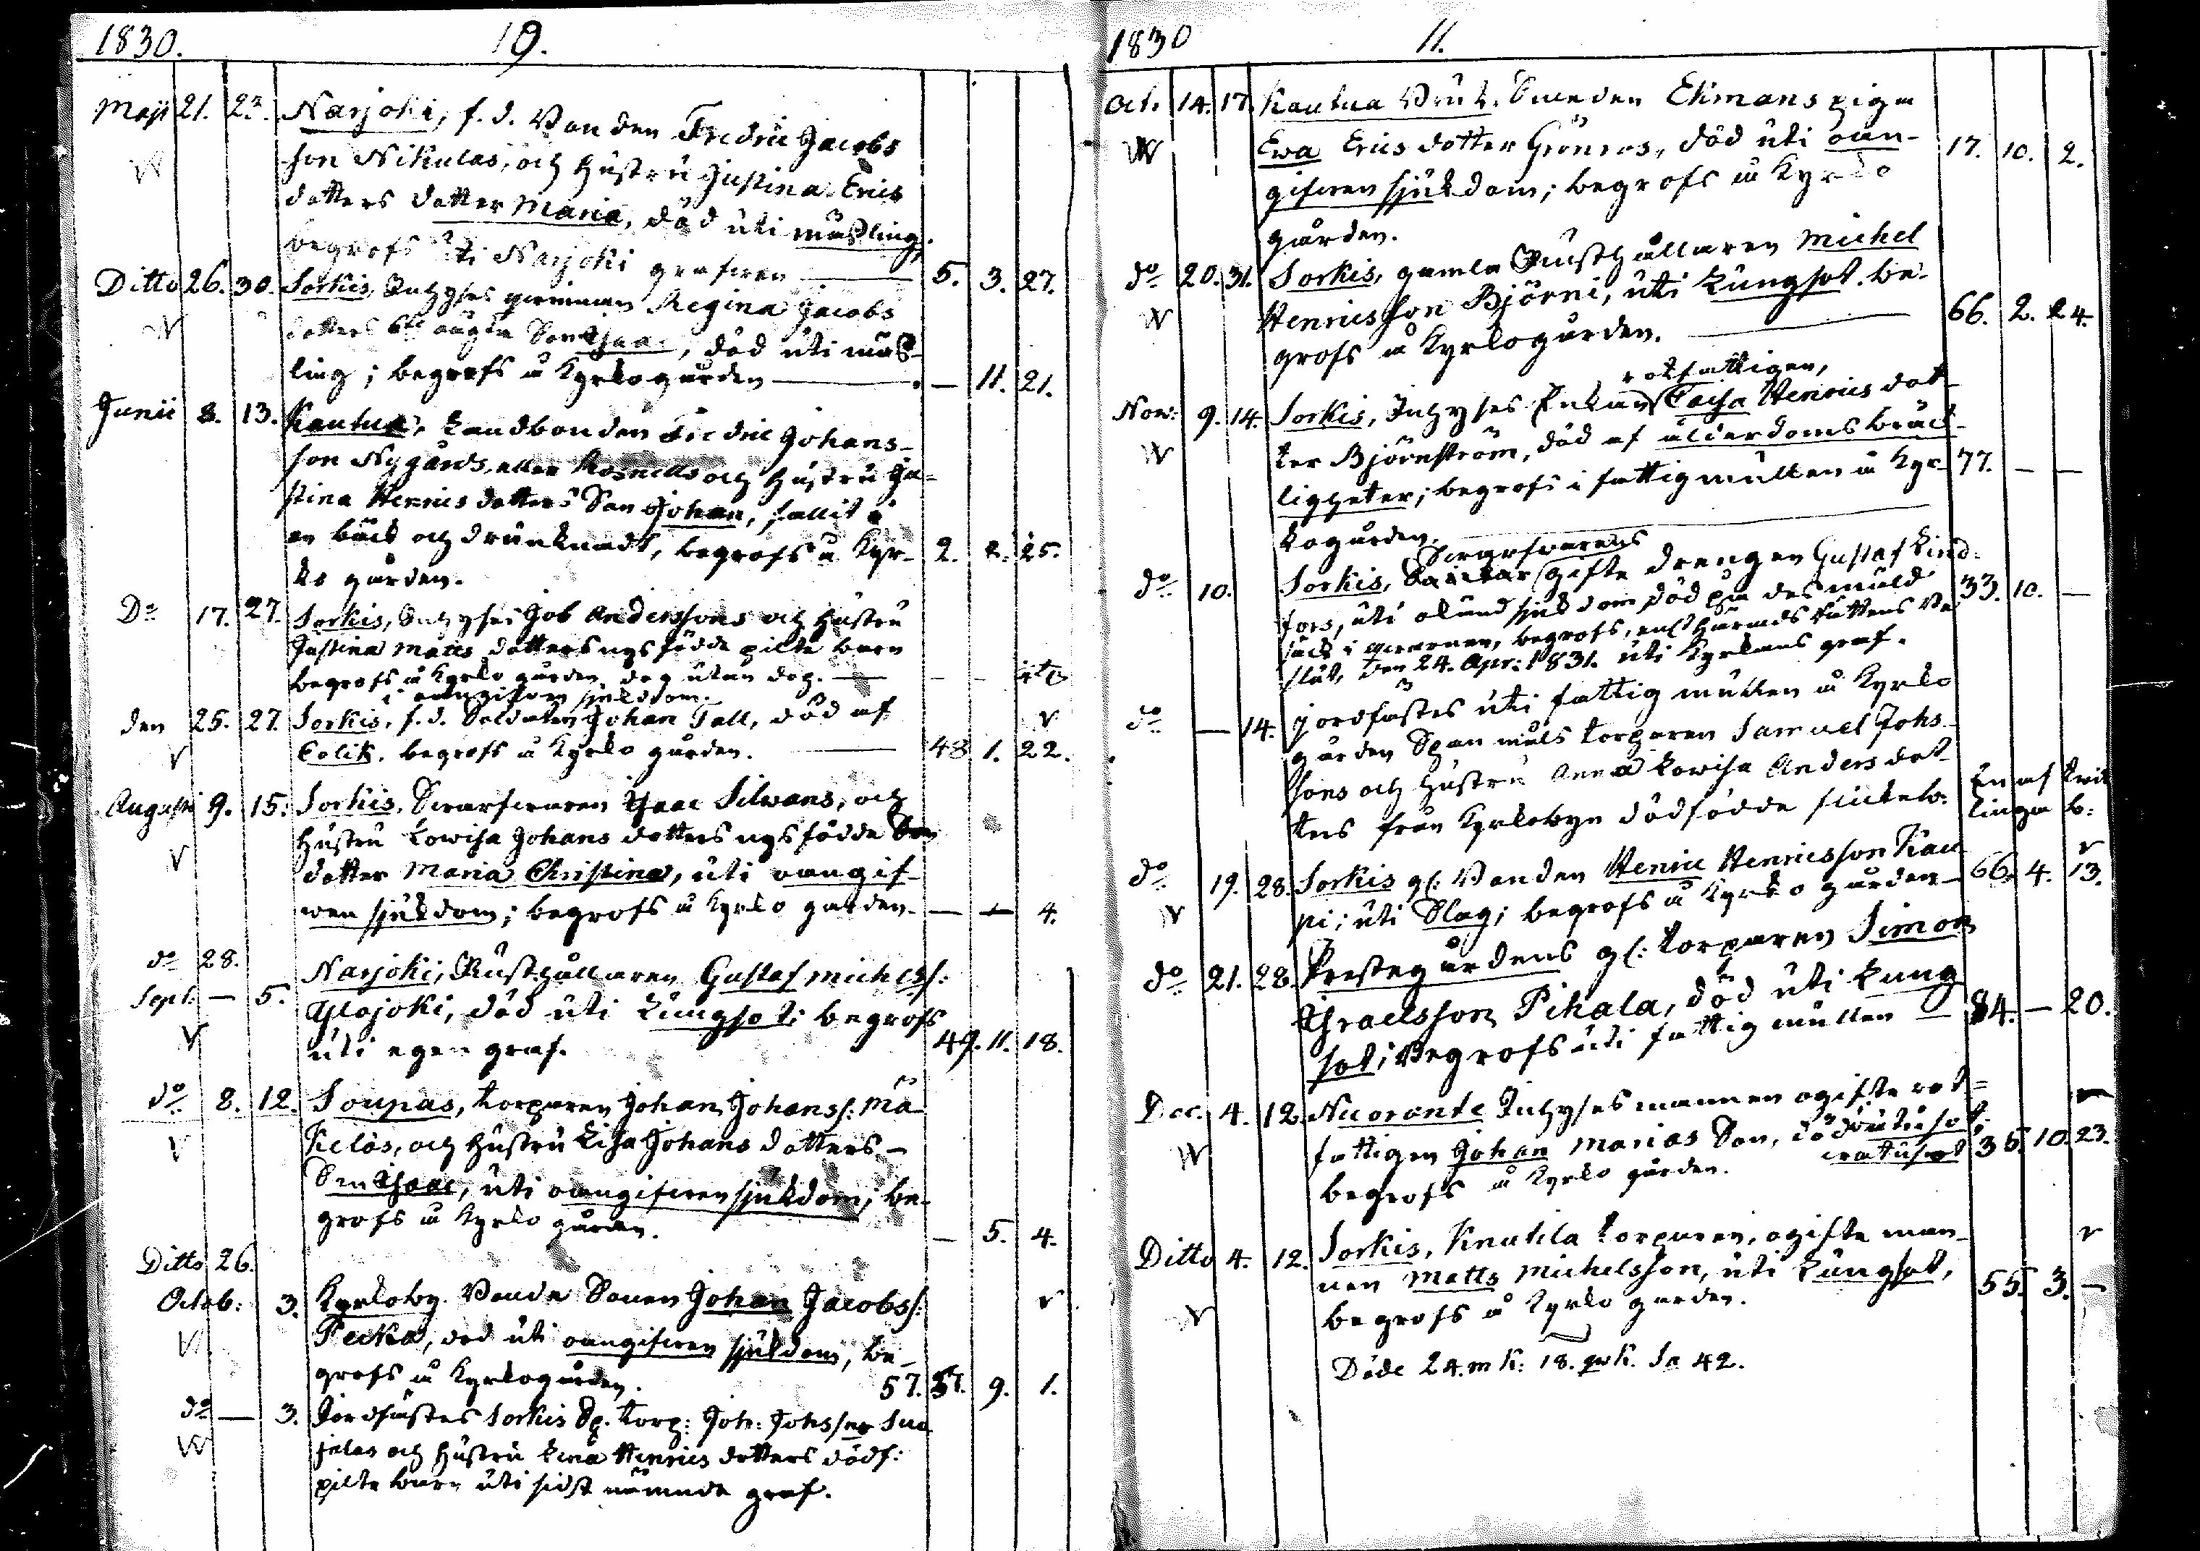 1830. 19.
Maji 21. 23. Narjoki, f. d. Bonden Fredric Jacobs
son Nikulas, och Hustru Justina Erics
dotters dotter Maria, död uti mäsling,
begrofs uti Narjoki grafven — 5. 3. 27.
Ditto 26. 30. Sorkis, Inhyses qvinnan Regina Jacobs
dotters oägta Son Isaac, död uti mäs-
ling; begrofs å Kyrkogården — — 11. 21.
Junii 8. 13. Kautua, Landbonden Fredric Johans-
son Nygårds, eller och Hustru Ju-
stina Henrics dotters Son Johan, fallit i
en bäck och drunknadt, begrofs å Kyr- 2. 2. 25.
ko gården.
Do 17. 27. Sorkis, Inhyses Job Anderssons och Hustru
Justina Matts dotters nysfödde pilte barn
begrofs å Kyrko gården, dog utan dop. —
i oangifven sjukdom.
den 25. 27. Sorkis, f. d. Soldaten Johan Tall, död af
Colik, begrofs å Kyrko gården. — 48 1. 22.
Augusti 9. 15. Sorkis, Svarfvaren Isaac Silvans, och
Hustru Lowisa Johans dotters nysfödde
dotter Maria Christina, uti oangif-
wen sjukdom; begrofs å Kyrko gården. — — 4.
do 28.
Sept: — 5. Narjoki, Rusthållaren Gustaf Michelss:
Ylojoki, död uti Lungsot; begrofs
uti egen graf. 49. 11. 18.
do 8. 12. Soupas, torparen Johan Johanss: Mä
kelas, och Hustru Lisa Johans dotters —
Son Isaac, uti oangifven sjukdom; be-
grofs å Kyrko gården. — 5. 4.
Ditto 26.
Octob: 3. Kyrkoby. Bonde Sonen Johan Jacobss:
Pecka, död uti oangifven sjukdom, be-
grofs å Kyrkogården. 57. 57. 9. 1.
do — 3. Jordfästes Sorkis Sp. torp: Joh: Johssns
jalas och Hustru Lena Henrics dotters dödf:
pilte barn uti sidst nämnde graf.
1830 11.
Oct. 14. 17. Kautua Bruk. Smeden Ekmans piga
Ewa Erics dotter Grönros, död uti oan- 17. 10. 2.
gifven sjukdom; begrofs å Kyrko
gården.
do 20. 31. Sorkis, gamla Rusthållaren Michel
Henricsson Björni, uti Lungsot. be- 66. 2. 24.
grofs å Kyrkogården. —
rotfattigen,
Nov: 9. 14. Sorkis, Inhyses Enkan Caisa Henrics dot-
ter Björnström, död af ålderdoms bräck-
ligheter; begrofs i fattigmullen å Kyr- 77. — —
kogården. —
Svarfvarens
do 10. Sorkis, gifte drengen Gustaf Lind-
fors, uti okänd sjukdom död på
begrofs, enl. Härads Rättens Be
slut, den 24. Apr: 1831. uti Kyrkans graf. 33. 10. —
do — 14. Jordfästes uti fattig mullen å Kyrko
gården Spanmåls torparen Samuel Johs-
sons och Hustru Anna Lowisa Anders dot-
ters från Kyrkobyn dödfödde flickeb: En af tvil
linga b:
do 19. 28. Sorkis gl: Bonden Henric Henricsson Kau
pi; uti Slag; begrofs å Kyrko gården — 66. 4. 13.
do 21. 28. Prestegårdens gl: torparen Simon
Israelsson Pihala, död uti Lung
sot; Begrofs uti fattigmullen — 84. — 20.
Dec. 4. 12. Nuorante Inhyses mannen ogifte rot-
fattigen Johan Marias Son, död
35. 10. 23.
begrofs å Kyrko gården.
Ditto 4. 12. Sorkis, Knutila torparen, ogifte man-
nen Matts Michelsson, uti Lungsot,
begrofs å Kyrko gården. 55. 3. —
Döde 24. m K: 18. qvK. Sa 42.